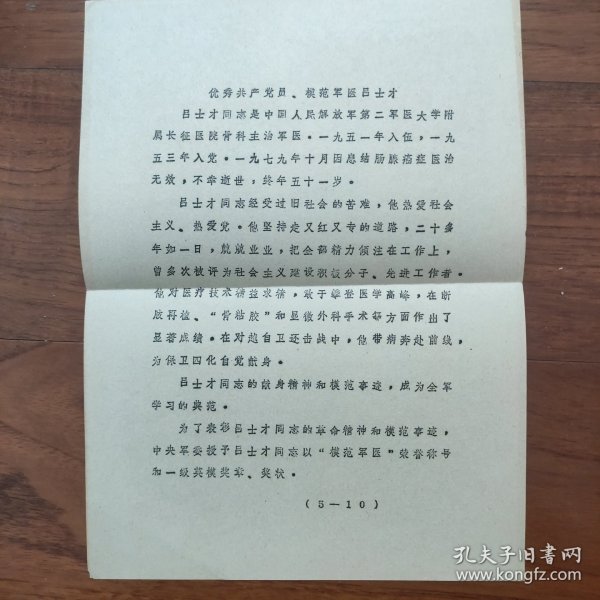 优秀共产党员、模范军医吕士才
吕士才同志是中国人民解放军第二军医大学附
属长征医院骨科主治军医。一九五一年入伍，一九
五三年入党。一九七九年十月因患结肠腺癌症医治
无效，不幸逝世；终年五十一岁。
吕士才同志经受过旧社会的苦难，他热爱社会
主义、热爱党。他坚持走又红又专的道路，二十多
年如一日，兢兢业业，把全部精力倾注在工作上，
曾多次被评为社会主义建设积极分子、先进工作者。
他对医疗技术精益求精，敢于攀登医学高峰，在断
肢再植、“骨粘胶”和显微外科手术等方面作出了
显著成绩。在对越自卫还击战中，他带病奔赴前线，
为保卫四化自觉献身。
吕士才同志的献身精神和模范事迹，成为全军
学习的典范。
为了表彰吕士才同志的革命精神和模范事迹，
中央军委授予吕士才同志以“模范军医”荣誉称号
和一级英模奖章、奖状。
（5—10）
孔夫子旧书网
www.kongfz.com